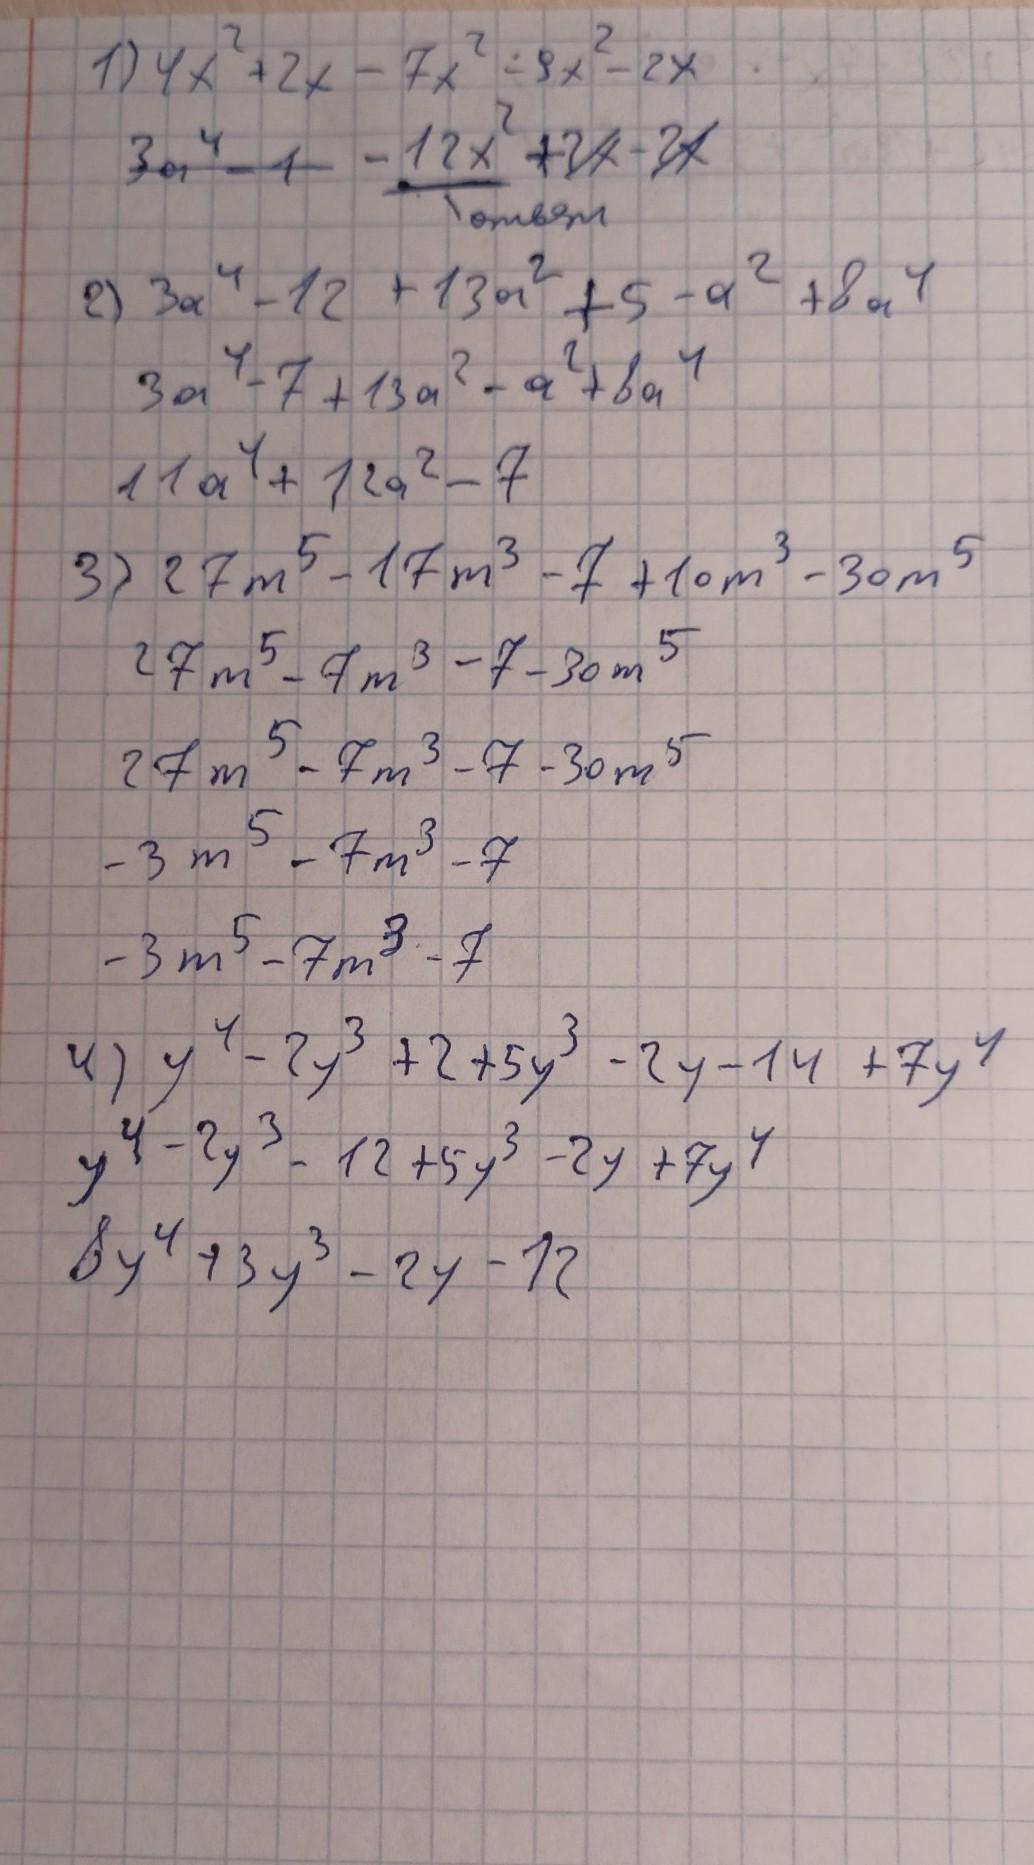 1) 4x² + 2x - 7x² - 9x² - 2x
3a⁴ - 1 - 12x² + 2x - 2x
ответ
2) 3a⁴ - 12 + 13a² + 5 - a² + 8a⁴
3a⁴ - 7 + 13a² - a² + 8a⁴
11a⁴ + 12a² - 7
3) 27m⁵ - 17m³ - 7 + 10m³ - 30m⁵
27m⁵ - 7m³ - 7 - 30m⁵
27m⁵ - 7m³ - 7 - 30m⁵
-3m⁵ - 7m³ - 7
-3m⁵ - 7m³ - 7
4) y⁴ - 2y³ + 2 + 5y³ - 2y - 14 + 7y⁴
y⁴ - 2y³ - 12 + 5y³ - 2y + 7y⁴
8y⁴ + 3y³ - 2y - 12